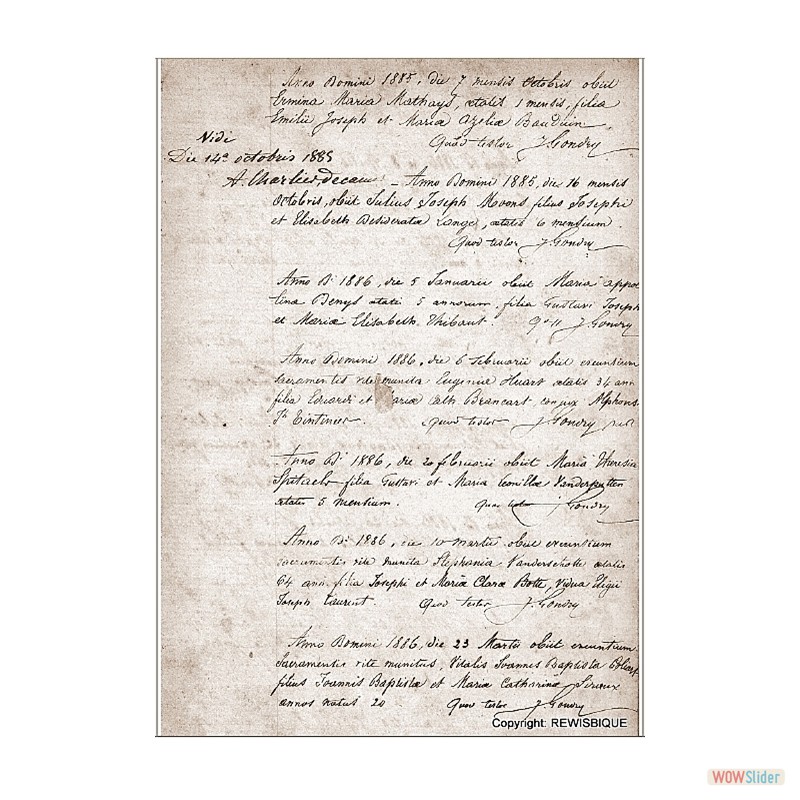 Anno Domini 1885, die 7 mensis octobris obiit
Ermina Maria Mathays, ætatis 1 mensis, filia
Emilii Joseph et Mariæ Azeliæ Bauduin
Quod testor J. Gondry
Vidi
Die 14a octobris 1885
A. Charlier, decanus
Anno Domini 1885, die 16 mensis
octobris, obiit Julius Joseph Moons, filius Josephi
et Elisabeth Desiderata Lange, ætatis 6 mensium.
Quod testor J. Gondry
Anno Di 1886, die 5 Januarii obiit Maria appo
lina Denys ætatis 5 annorum, filia Gustavi Joseph
et Mariæ Elisabeth Thibaut. J. Gondry
Anno Domini 1886, die 6 februarii obiit excuntium
sacramentis rite munita Eugenia Huart ætatis 34 ann
filia Eduardi et Mariæ Cath Brancart conjux Alphons.
Jh Tintinier. Quod testor J. Gondry
Anno Di 1886, die 20 februarii obiit Maria Theresia
Spitaels filia Gustavi et Maria Leonilla Vanderputten
ætatis 5 mensium. Quod testor J. Gondry
Anno Di 1886, die 10 martii obiit excuntium
sacramentis rite munita Stephania Vanderschotte ætatis
64 ann. filia Josephi et Mariæ Clara Botte, vidua Eligii
Joseph Laurent. Quod testor J. Gondry
Anno Domini 1886, die 23 Martii obiit excuntium
Sacramentis rite munitus, Vitalis Joannes Baptista
filius Joannis Baptistæ et Mariæ Catharinæ
annos natus 20 Quod testor J. Gondry
Copyright: REWISBIQUE
WOWSlider